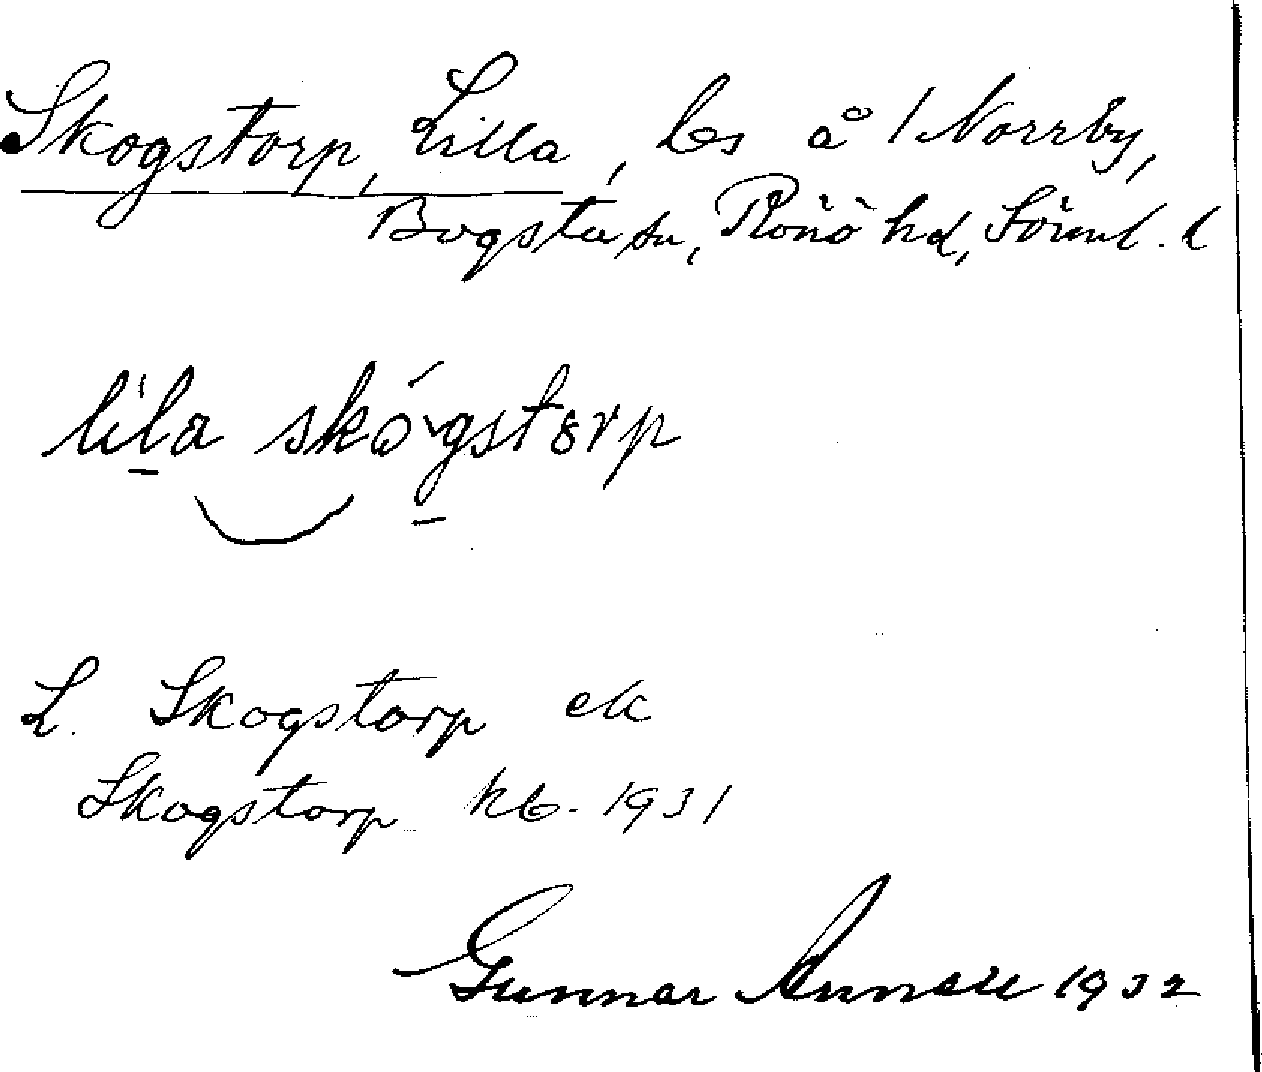 Skogstorp, Lilla, bs å 1 Norrby,
Bogsta sn, Rönö hd, Sörml. l
lila skógstorp
L. Skogstorp ek
Skogstorp kb. 1931
Gunnar Annell 1932